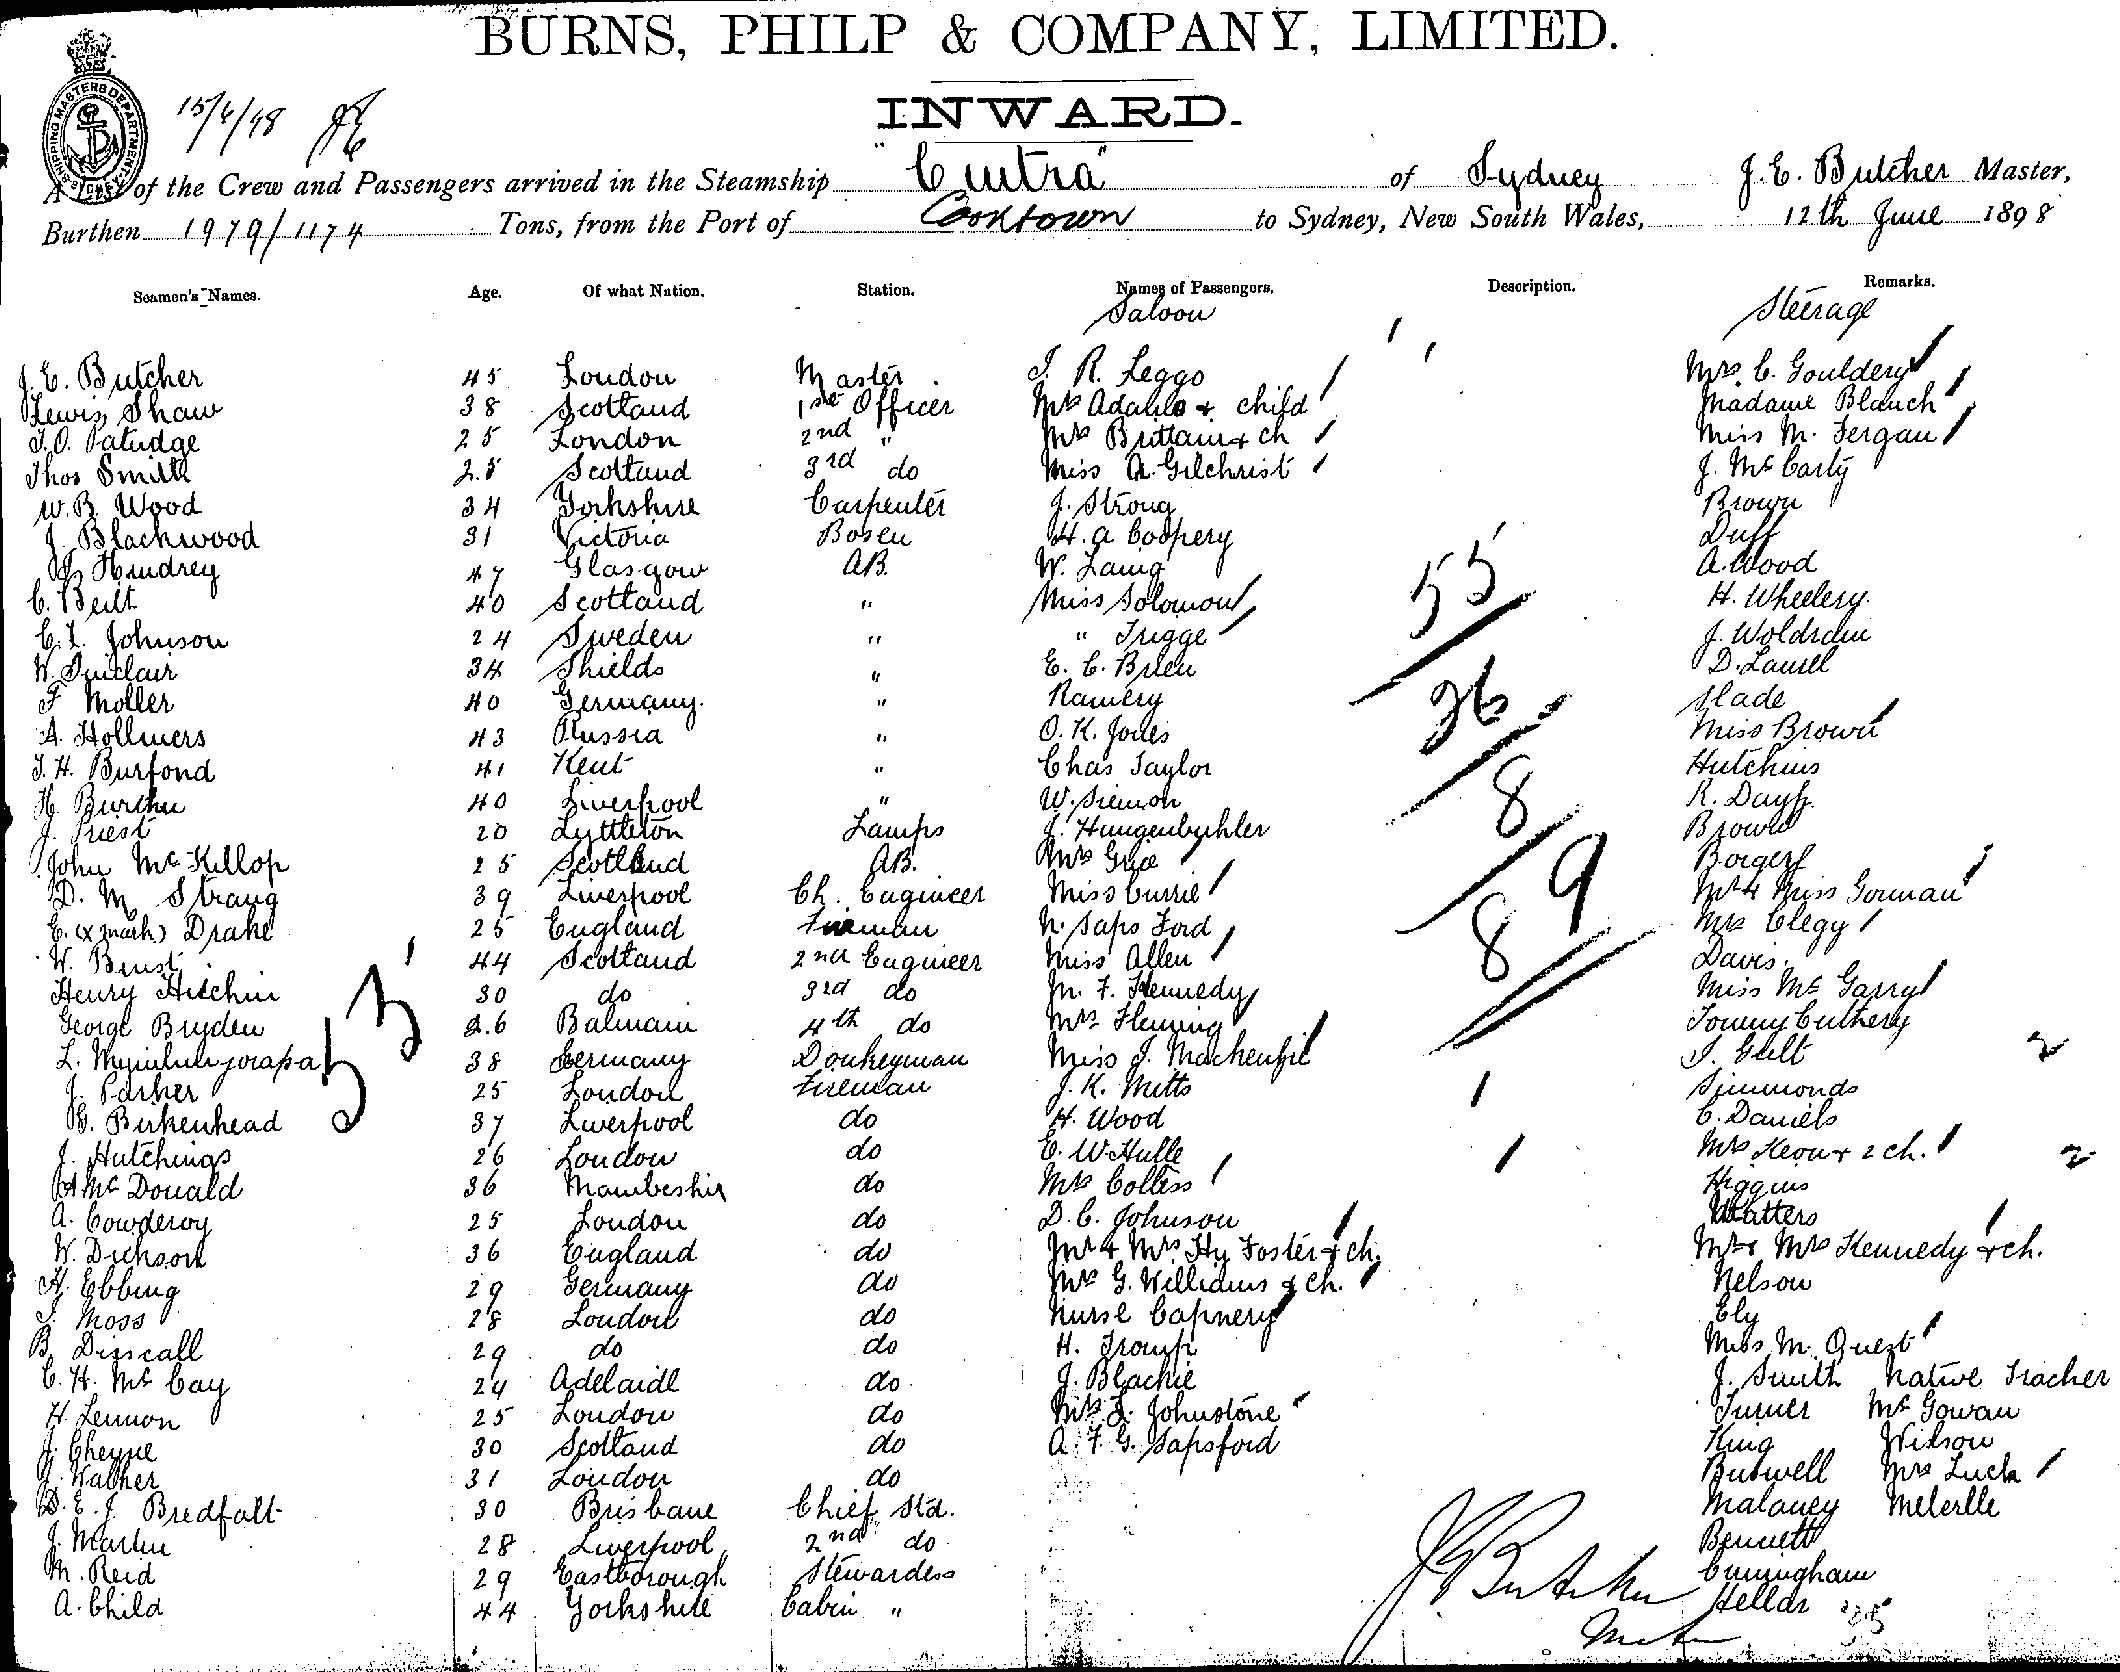 BURNS, PHILP & COMPANY, LIMITED.
INWARD.
SHIPPING MASTERS DEPARTMENT
15/6/98
A List of the Crew and Passengers arrived in the Steamship "Cintra" of Sydney J. E. Butcher Master,
Burthen 1979/1174 Tons, from the Port of Cooktown to Sydney, New South Wales, 12th June 1898
Seamen's Names. Age. Of what Nation. Station. Names of Passengers. Description. Remarks.
Saloon Steerage
J. E. Butcher 45 London Master J. R. Leggo Mrs C. Gouldery
Lewis Shaw 38 Scotland 1st Officer Mrs & child Madame Blanch
25 London 2nd " Mrs Brittain & ch Miss M. Fergan
Thos Smith 25 Scotland 3rd do Miss A. Gilchrist J. McCarty
W. B. Wood 34 Yorkshire Carpenter J. Strong Brown
J. Blackwood 31 Victoria Bosen H. A. Coopery Duff
Hendrey 47 Glasgow AB. W. Laing A. Wood
C. Beilt 40 Scotland " Miss Solomon H. Wheelery
C. L. Johnson 24 Sweden " " Trigge J. Woldrain
W. Sinclair 34 Shields " E. C. Brien D. Laurel
F Moller 40 Germany. " Ramery Slade
A. Hollmers 43 Russia " O. K. Jones Miss Brown
J. H. Burfond 41 Kent " Chas Taylor Hutchins
H. 40 Liverpool " W. Siemon R. Days
J. Priest 20 Lyttleton Lamps J. Hungenbuhler Brown
John McKillop 25 Scotland AB. Mrs Grice
D. M. Strang 39 Liverpool Ch. Engineer Miss Currie Mr & Miss Gorman
E. (x mark) Drake 25 England Fireman N. Saps Ford Mrs Clegy
W. 44 Scotland 2nd Engineer Miss Allen Davis
Henry Hitchin 30 do 3rd do Jn. F. Kennedy Miss McGarry
George Bryden 26 Balmain 4th do Mrs Fleming Tommy
L. 38 Germany Donkeyman Miss J. Mackenzie
J. Parker 25 London Fireman J. K. Mitts Simmonds
G. Birkenhead 37 Liverpool do H. Wood C. Daniels
J. Hutchings 26 London do E. W. Hulle Mrs Keon & 2 ch.
A McDonald 36 do Mrs Colless Higgins
A. Cowderoy 25 London do D. C. Johnson Watters
W. Dickson 36 England do Mr & Mrs Hy Foster & ch. Mr & Mrs Kennedy & ch.
H. Ebbing 29 Germany do Mrs G. Williams & ch. Nelson
J. Moss 28 London do Nurse Capnery Ely
B. Disscall 29 do do H. Tromp Miss M. Quest
C. H. McCay 24 Adelaide do J. Blackie J. Smith Native Tracker
H. Lennon 25 London do Mrs L. Johnstone Turner McGowan
J. Cheyne 30 Scotland do A. F. G. Sapsford King Wilson
J. Walker 31 London do Butwell Mrs Luck
D. E. J. Bredfalt 30 Brisbane Chief Std. Malaney
J. Martin 28 Liverpool 2nd do Bennett
M. Reid 29 Eastborough Stewardess Cunningham
A. Child 44 Yorkshire Cabin "
55
36
8
9
8
53
J E Butcher